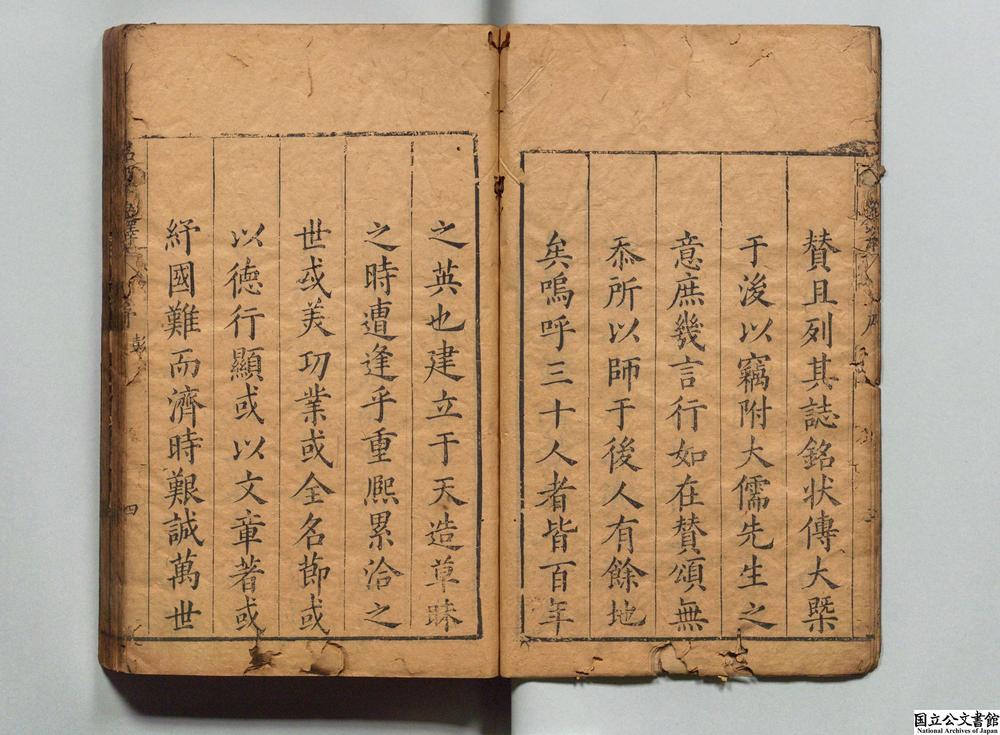 賛且列其誌銘状傳大槩
于後以竊附大儒先生之
意庶幾言行如在賛頌無
忝所以師于後人有餘地
矣嗚呼三十人者皆百年
之英也建立于天造草昧
之時遭逢乎重熈累洽之
世或美功業或全名節或
以德行顯或以文章著或
紓國難而濟時艱誠萬世
四
国立公文書館
National Archives of Japan